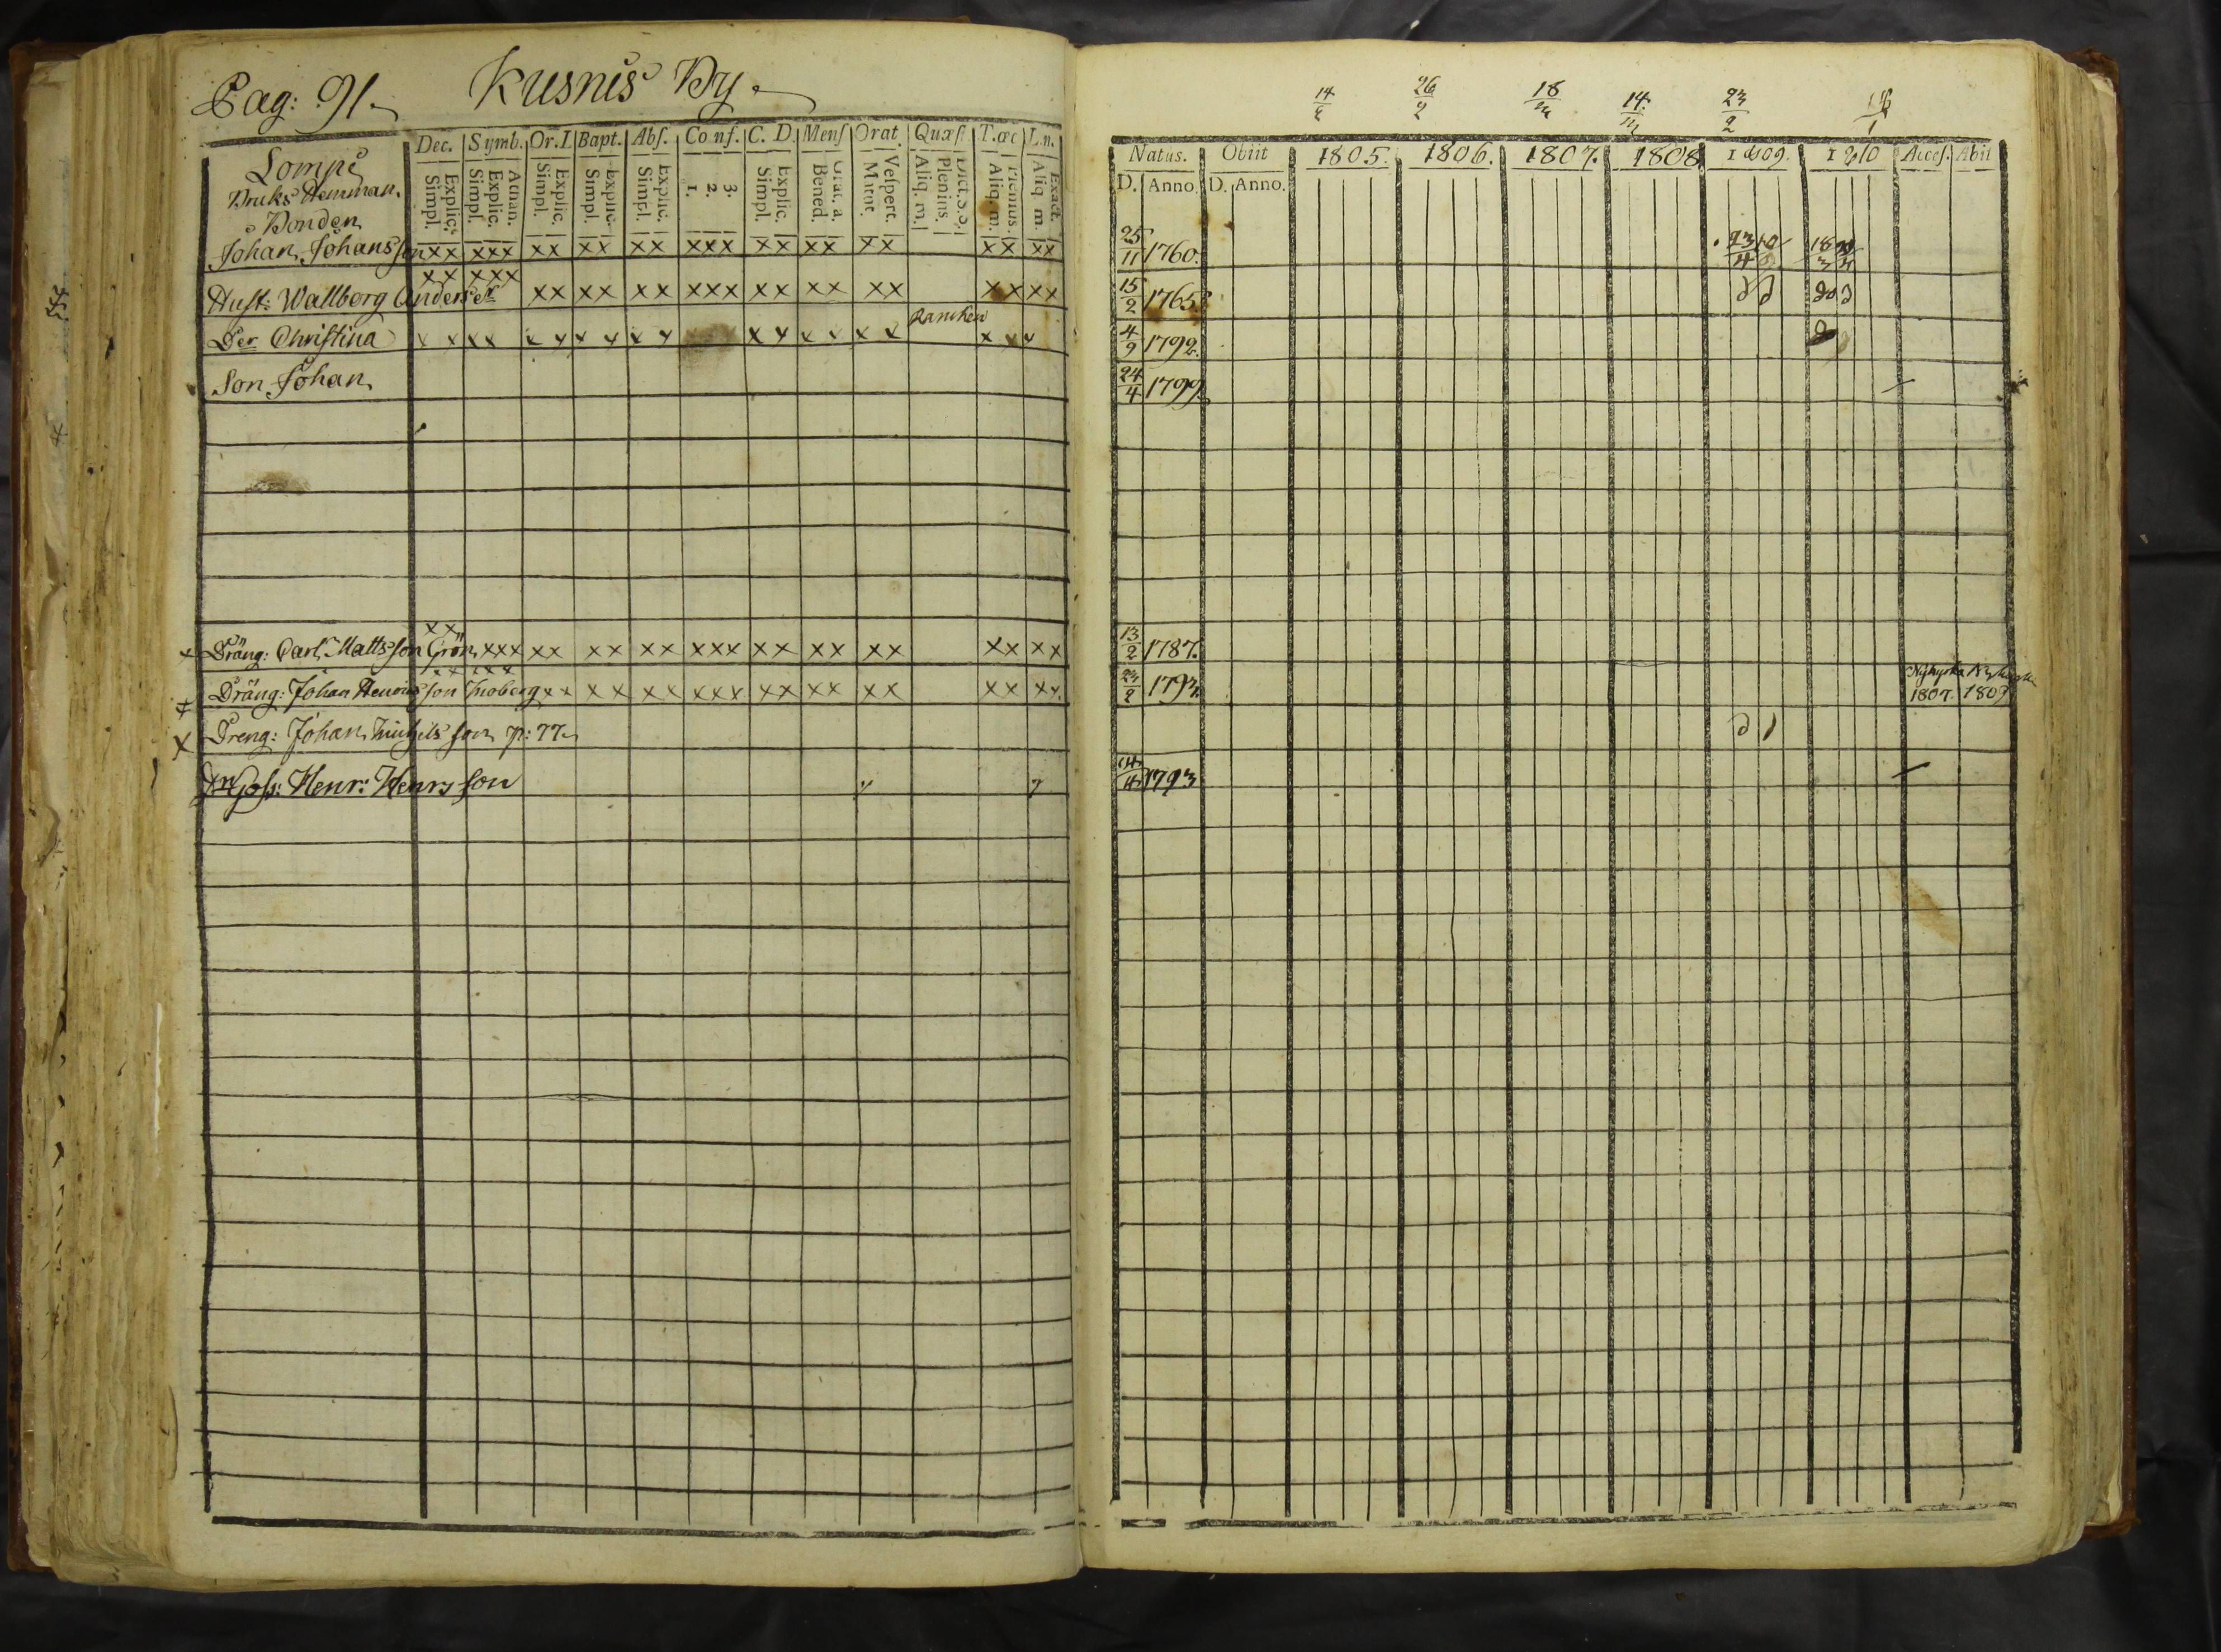 Pag: 91. Kusnis By.
Dec. Symb. Or. I Bapt. Abs. Conf. C. D. Mens Orat. Quæst T. œc L. n.
Lompi
Bruks Hemman.
Bonden
Explic. Simpl. Athan. Explic. Simpl. Explic. Simpl. Explic. Simpl. Explic. Simpl. 3. 2. 1. Explic. Simpl. Grat. a. Bened. Vespert. Matut. Dict. S. S. Plenius. Aliq. m. Plenius. Aliq. m. Exact. Aliq. m.
Johan Johansson xx xxx xx xx xx xxx xx xx xx xx xx
xx xxx
Hust: Wallberg Andersdr xx xx xx xxx xx xx xx xx xx
Der Christina x x x x x x x x x x x x x x x x x x x
Son Johan
xx
x Dräng: Carl Mattsson Grön xxx xx xx xx xxx xx xx xx xx xx
xx xxx
Dräng: Johan Henricsson xx xx xx xxx xx xx xx xx xx
x Dreng: Johan son p: 77
Henr: Henrsson
14 26 2 18 14 23 2 1
Natus. Obiit 1805. 1806. 1807. 1808. 1809. 1810 Access. Abii
D. Anno. D. Anno.
25 11 1760. 23 4 18 3
15 2 1765.
4 9 1792.
24 4 1799.
13 2 1787.
23 2 1793.
1807. 1809
1793